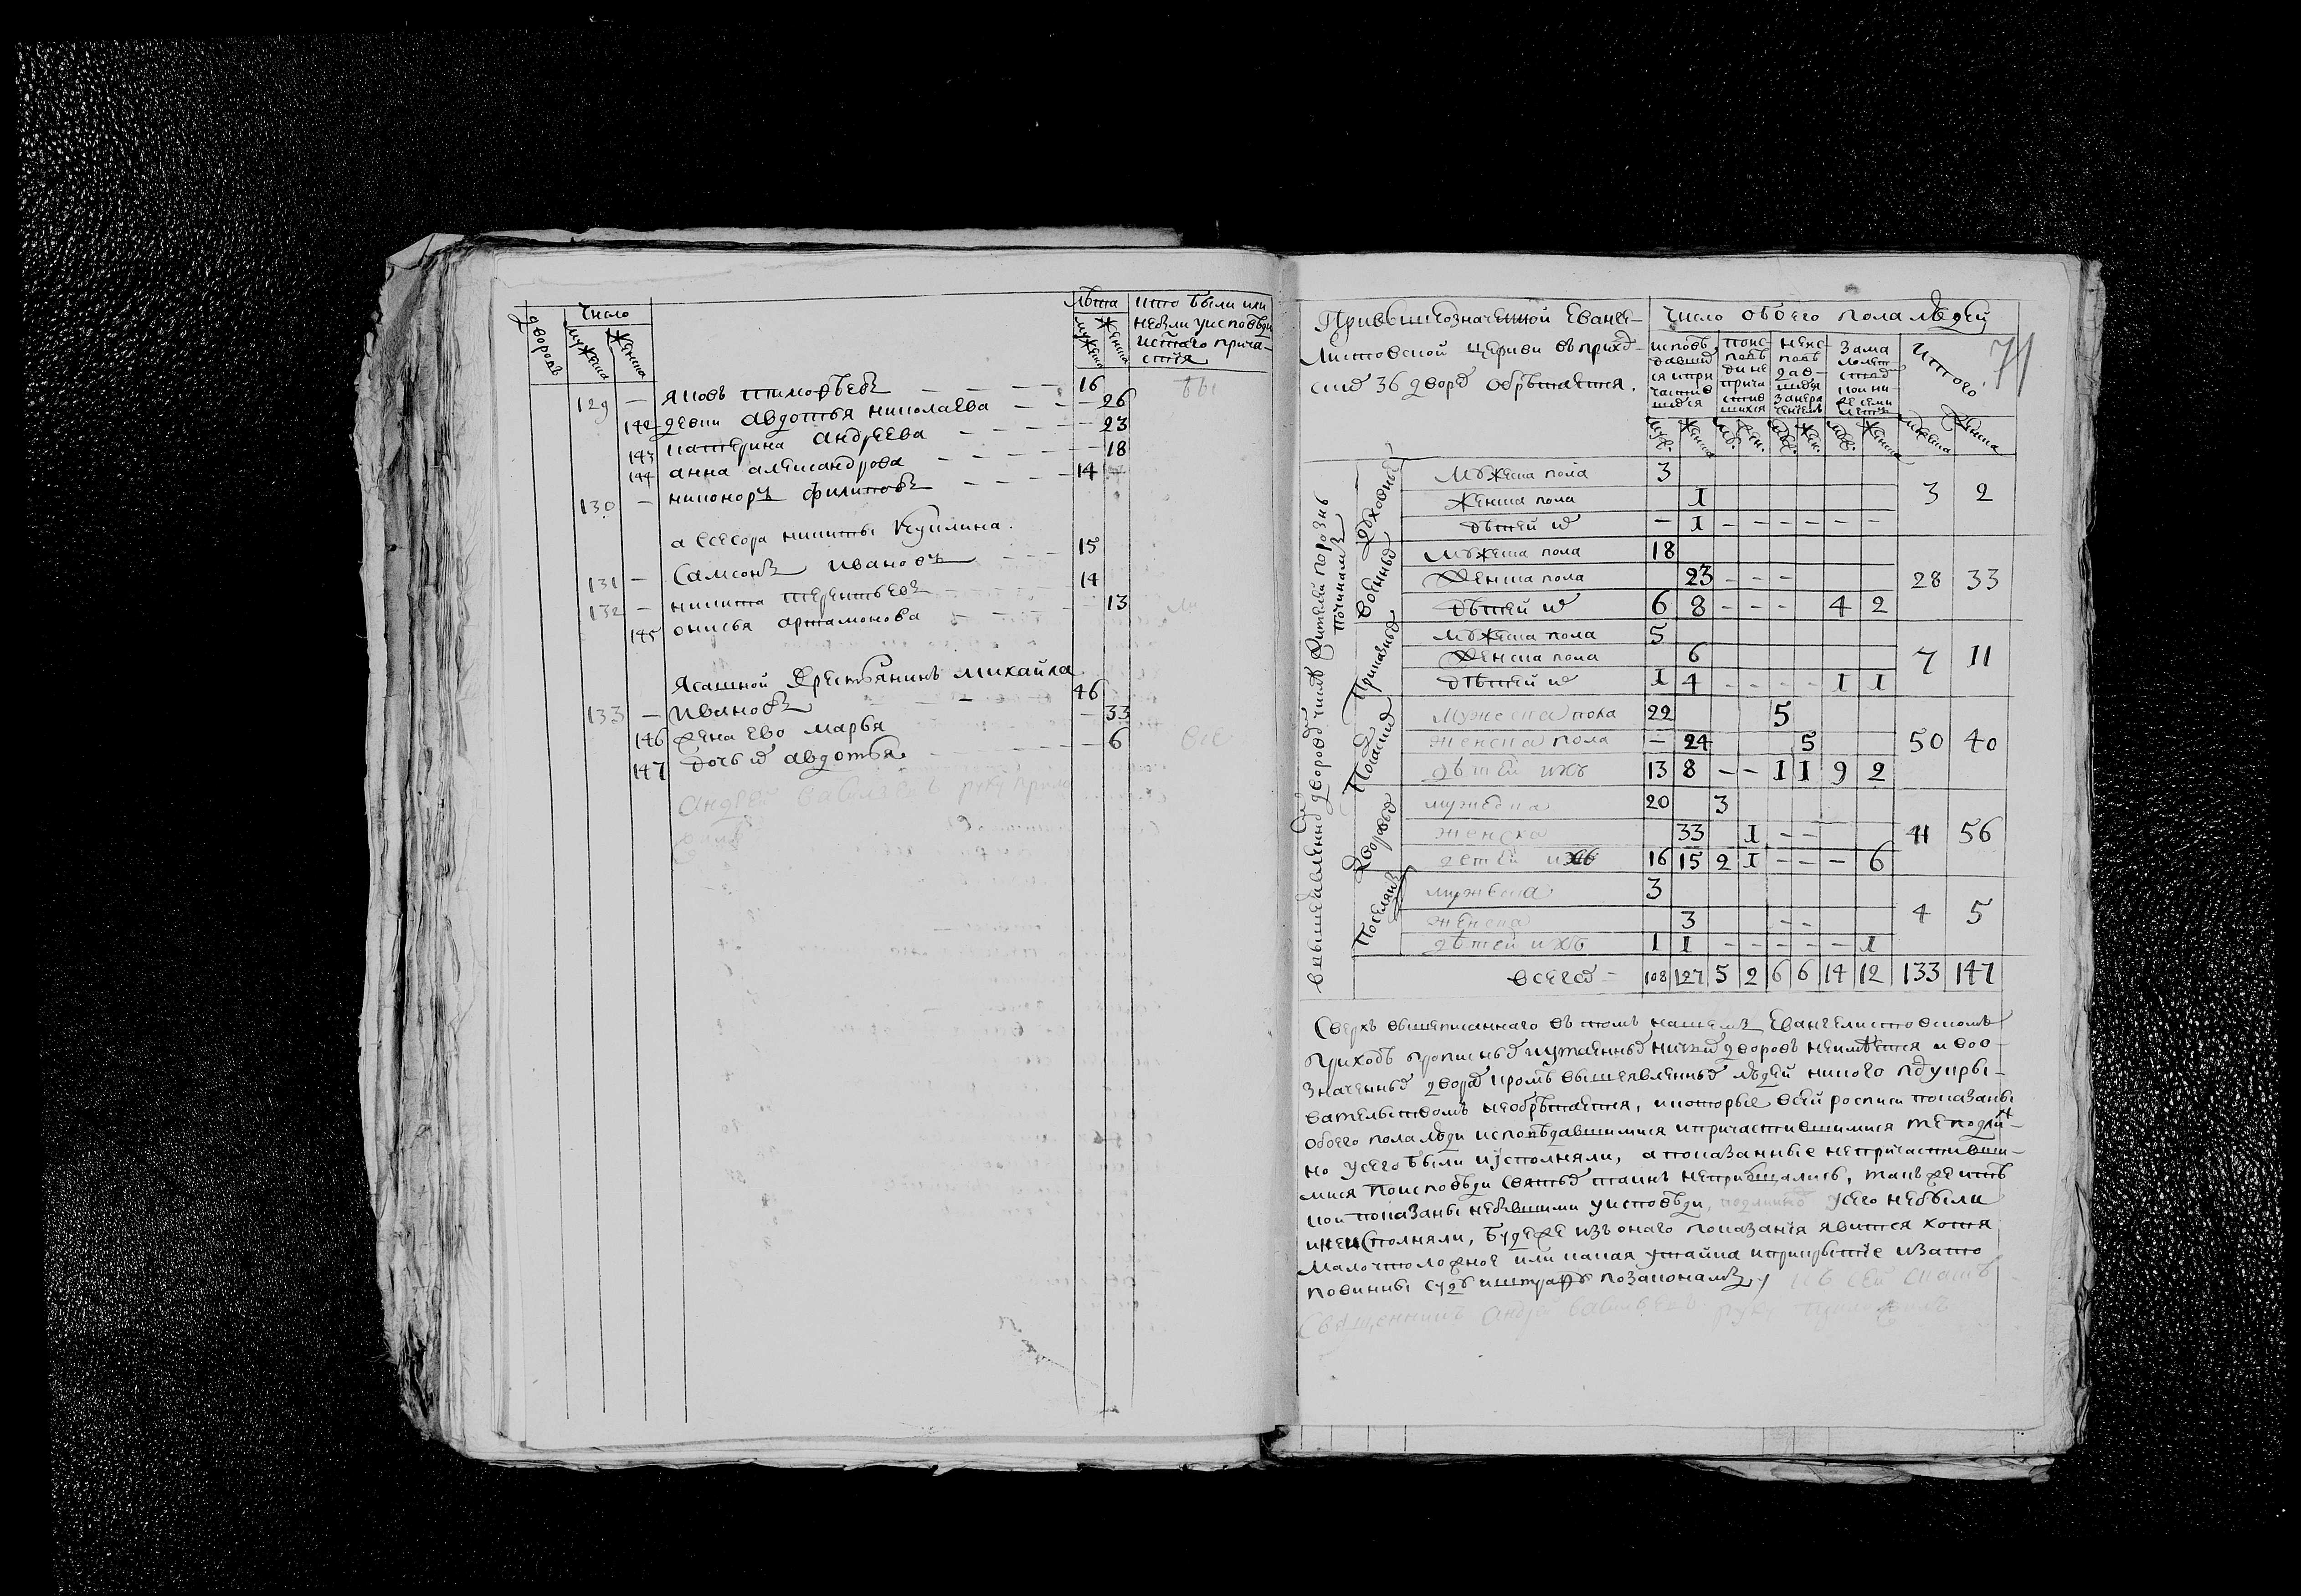 дворовъ
Число
мужеска
женска
Лѣта
мужеска
женска
кто были или
небыли уисповѣди
исвтаго прича-
стия
129 — яковъ тимофѣевъ — — — — 16
142 девки авдотья николаева — — — 26
143 катерина андреева — — — — 23
144 анна александрова — — — — 18
130 — никоноръ филиповъ — — — — 14
асесора никиты
131 — Самсонъ ивановъ — — — 15
132 — никита терентьевъ 14
145 онисья артамонова — — 13
Ясашной крестьянинъ михайла
133 — ивановъ — 46
146 жена ево марья — 33
147 дочь и авдотья — — — — — 6
андрей савельевъ руку прило
жилъ
Привышеозначенной Еванге-
листовской церкви въприход-
ски 36 дворѣ обрѣтается.
Число обоего пола людей
71
исповѣ
давши
ся ипри
частив
шихся
поис-
повѣ
ди не
прича
стив
шихся
неис-
повѣ
дав-
шихся
зама
лолет
ством
кои ни-
же семи
летъ
Итого
муж.
женска
муж.
жен.
муж.
жен.
муж.
женска
мужеска
женска
Духовны
мужеска пола 3
женска пола 1
дѣтей и — 1 — — — — — —
3 2
Военны
мужеска пола 18
женска пола 23 — — —
дѣтей и 6 8 — — — 4 2
28 33
Приказны
мужеска пола 5
женска пола 6
дѣтей и 1 4 — — — — 1 1
7 11
Посацки
мужеска пола 22 5
женска пола — 24 5
дѣтей ихъ 13 8 — — 1 1 9 2
50 40
Дворовы
мужеска 20 3
женска 33 1 — —
детей ихъ 16 15 2 1 — — — 6
41 56
Поселянъ
мужеска 3
женска 3 — —
дѣтей ихъ 1 1 — — — — — 1
4 5
всего — 108 127 5 2 6 6 14 12 133 147
Сверхъ вышеписаннаго въ томъ нашемъ Евангелистовскомъ
приходѣ прописны иутаенны ничьи дворовъ неимѣется и воо-
значенны двора кромѣ вышеявленны людей никого подукры-
вательствомъ необрѣтается, икоторые всей росписи показаны
обоего пола люди исповѣдавшимися ипричастившимися те подли-
но усего были иусполняли, апоказанные непричастивши-
мися поисповѣди святы таинъ неприбщались, такъже итѣ
кои показаны небывшими уисповѣди, подлинно усего небыли
инеисполняли, будеже изъ онаго показания явится хотя
мало что ложное или какая утайка иприкрытие изато
повинны суда иштрафа позаконамъ къ сей сказкѣ
Священникъ андрей савельевъ руку приложилъ